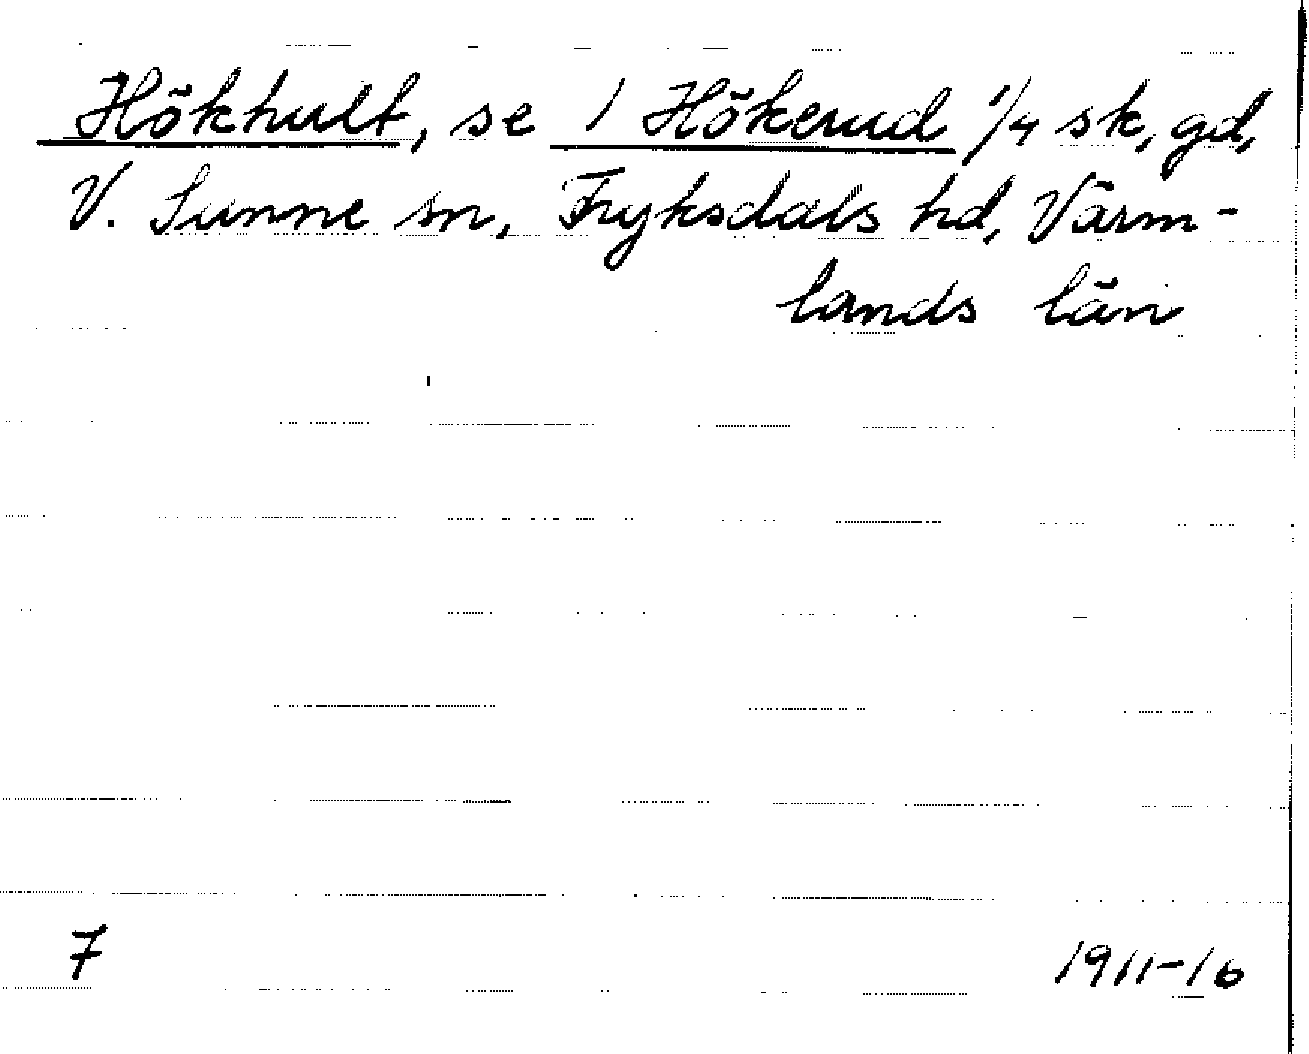 Hökhult, se 1 Hökerud 1/4 sk, gd,
V. Sunne sn, Fryksdals hd, Värm-
lands län
7
1911-16